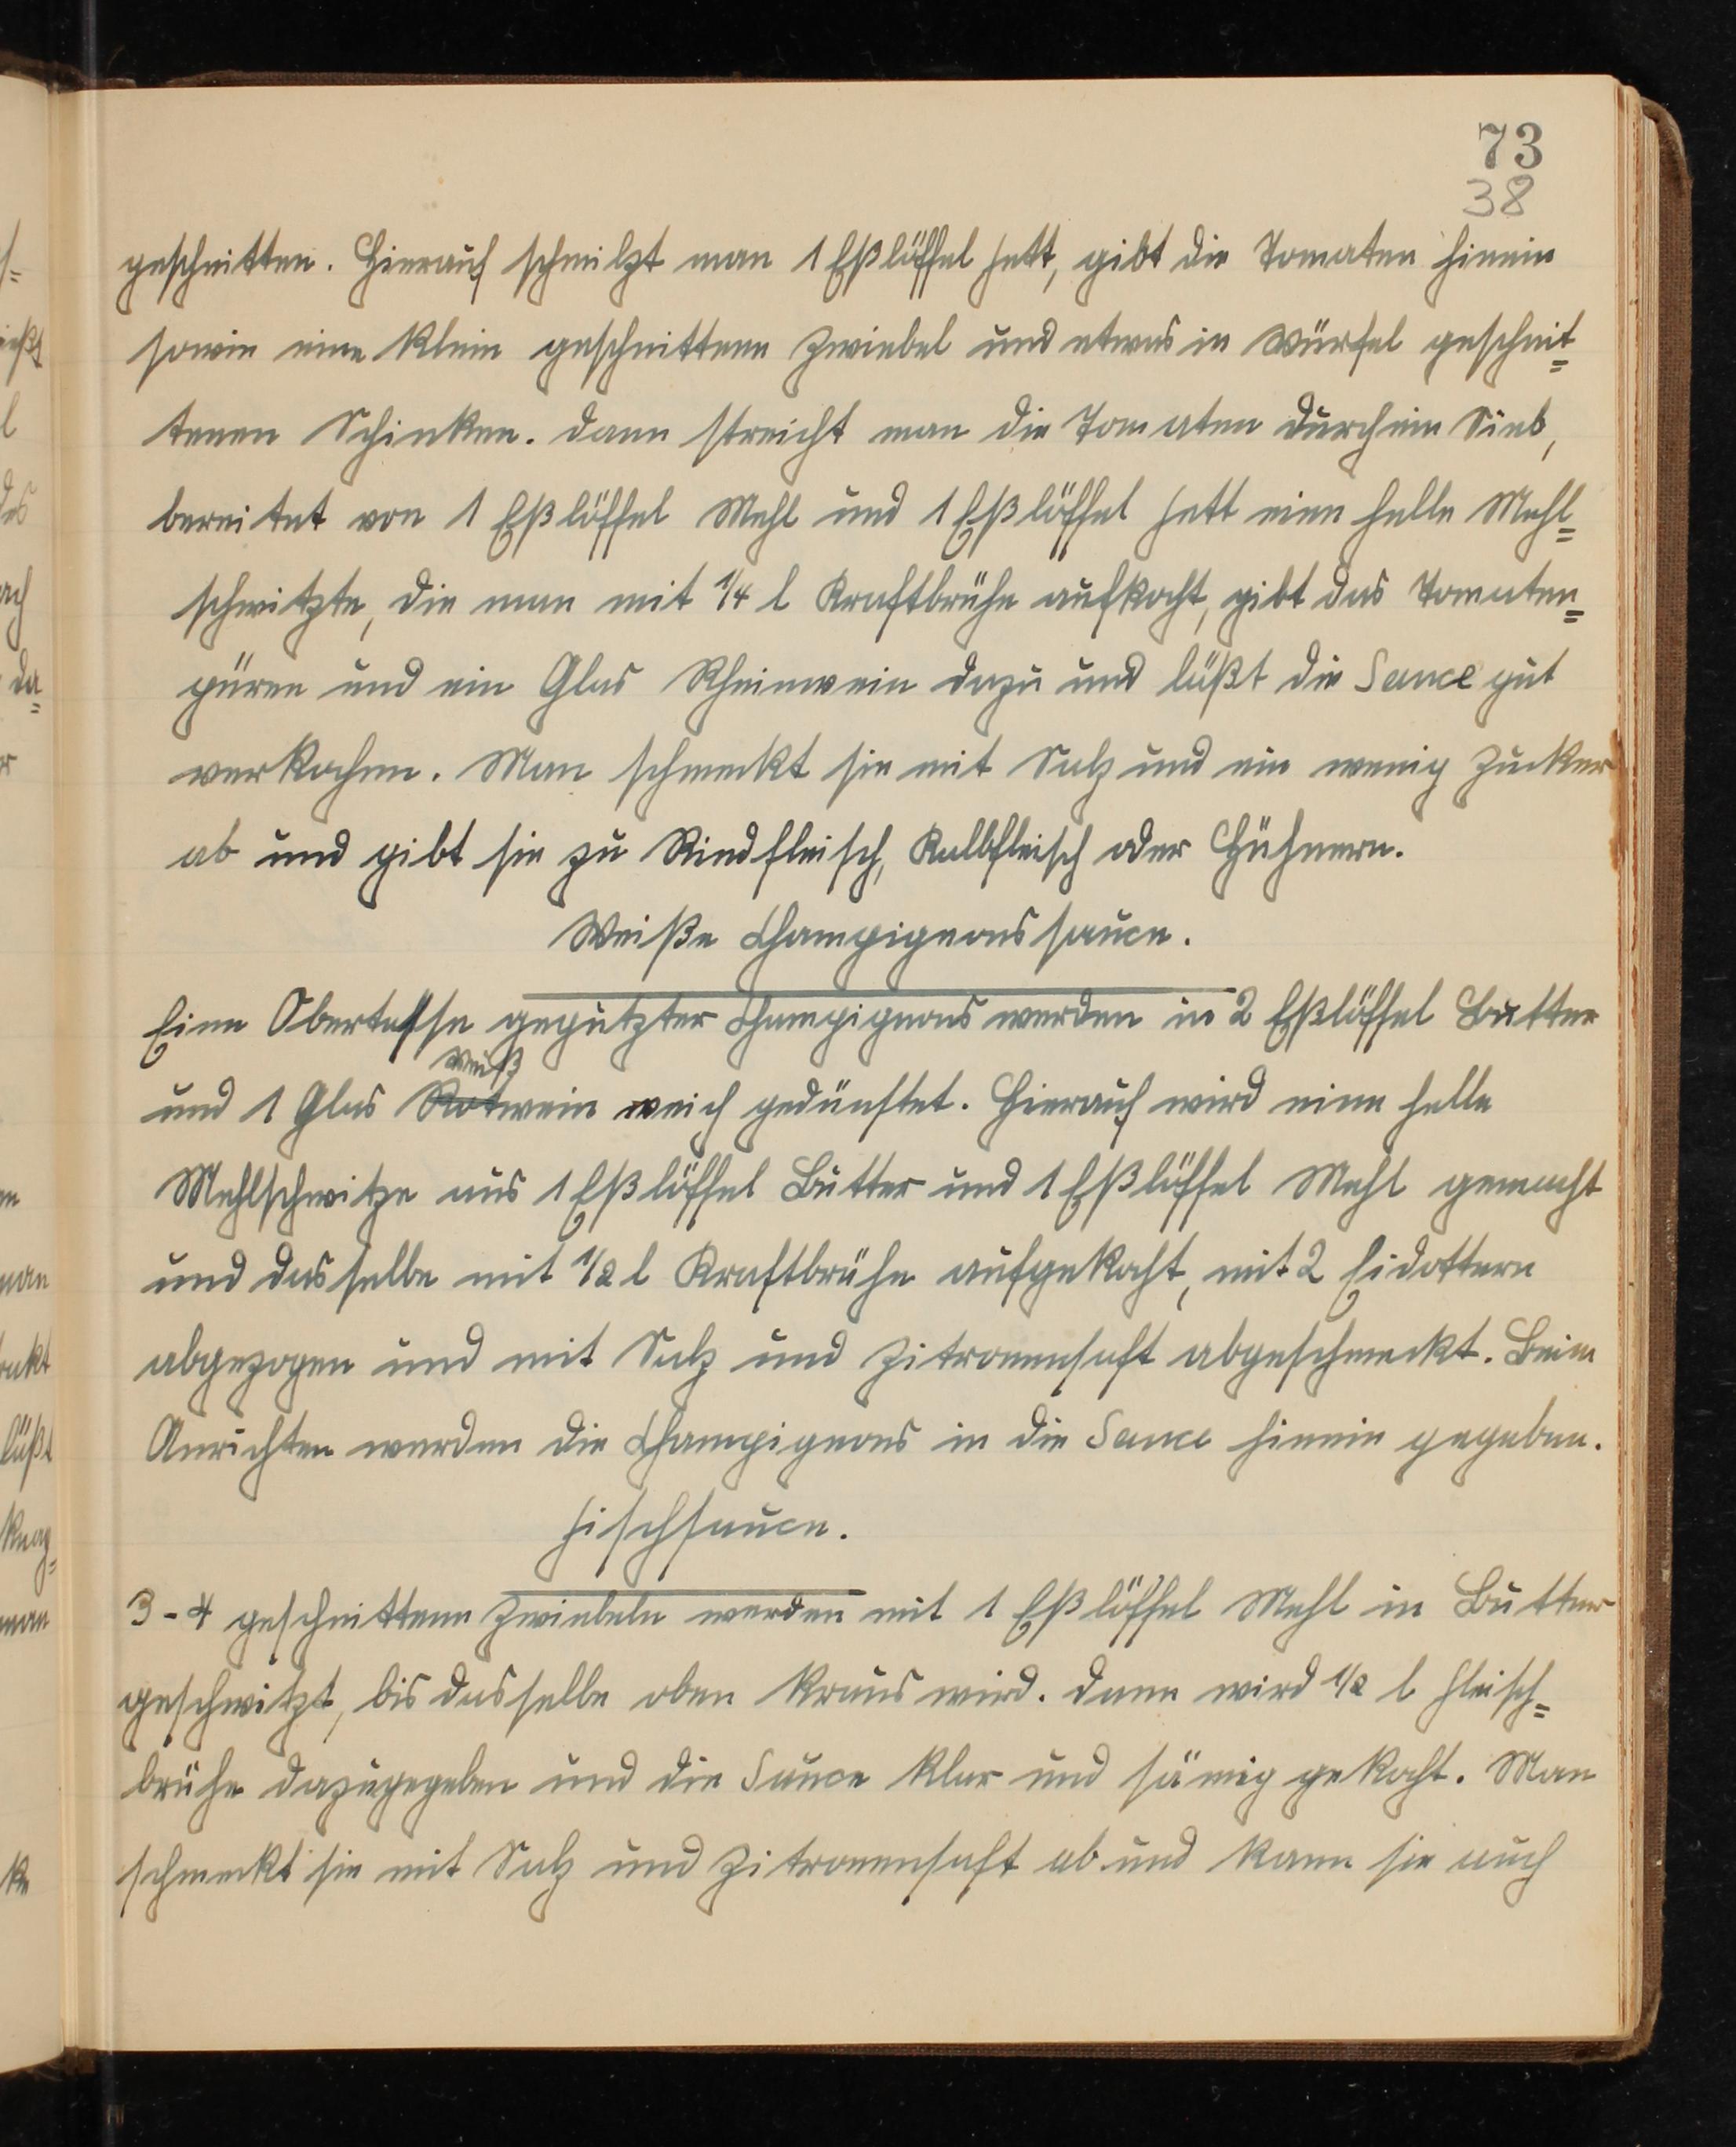 73
38
geschnitten. Hierauf schmilzt man 1 Eßlöffel Fett, gibt die Tomaten hinein
sowie eine klein geschnittene Zwiebel und etwas in Würfel geschnit=
tenen Schinken. Dann streicht man die Tomaten durch ein Sieb,
bereitet von 1 Eßlöffel Mehl und 1 Eßlöffel Fett eine helle Mehl=
schwitzte, die man mit 1/4 l Kraftbrühe aufkocht, gibt das Tomaten=
püree und ein Glas Rheinwein dazu und läßt die Sauce gut
verkochen. Man schmeckt sie mit Salz und ein wenig Zucker
ab und gibt sie zu Rindfleisch, Kalbfleisch oder Hühnern.
Weiße Champignonssauce.
Eine Obertasse geputzter Champignons werden in 2 Eßlöffel Butter
weiß
und 1 Glas Rotwein weich gedünstet. Hierauf wird eine helle
Mehlschwitze aus 1 Eßlöffel Butter und 1 Eßlöffel Mehl gemacht
und dasselbe mit 1/2 l Kraftbrühe aufgekocht, mit 2 Eidottern
abgezogen und mit Salz und Zitronensaft abgeschmeckt. Beim
Anrichten werden die Champignons in die Sauce hinein gegeben.
Fischsauce.
3-4 geschnittene Zwiebeln werden mit 1 Eßlöffel Mehl in Butter
geschwitzt, bis dasselbe oben kraus wird. Dann wird 1/2 l Fleisch=
brühe dazugegeben und die Sauce klar und sämig gekocht. Man
schmeckt sie mit Salz und Zitronensaft ab und kann sie auch